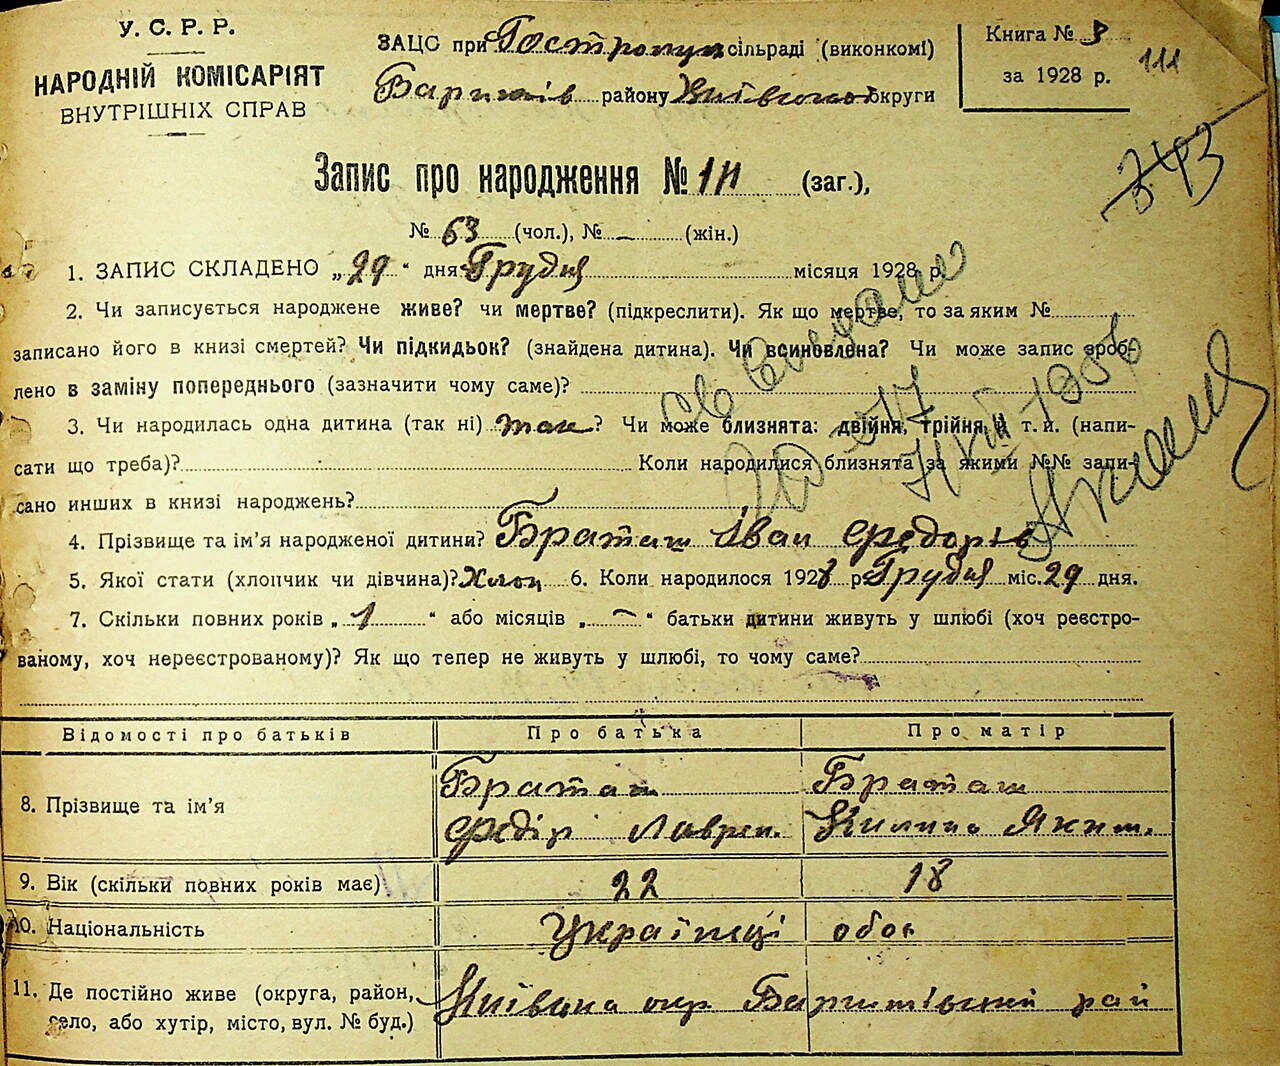 У. С. Р. Р.
НАРОДНІЙ КОМІСАРІЯТ
ВНУТРІШНІХ СПРАВ
ЗАЦС при Гостролуц сільраді (виконкомі)
Баришів району Київської округи
Книга № 3
за 1928 р.
111
343
Запис про народження № 111 (заг.),
№ 63 (чол.), № – (жін.)
1. ЗАПИС СКЛАДЕНО „29“ дня Грудня місяця 1928 р.
2. Чи записується народжене живе? чи мертве? (підкреслити). Як що мертве, то за яким №
записано його в книзі смертей? Чи підкидьок? (знайдена дитина). Чи всиновлена? Чи може запис зроб-
лено в заміну попереднього (зазначити чому саме)?
3. Чи народилась одна дитина (так ні) так? Чи може близнята: двійня, трійня й т. и. (напи-
сати що треба)? Коли народилися близнята за якими №№ запи-
сано инших в книзі народжень?
4. Прізвище та ім'я народженої дитини? Браташ Іван Федорів
5. Якої стати (хлопчик чи дівчина)? Хлоп 6. Коли народилося 1928 р Грудня міс. 29 дня.
7. Скільки повних років „1“ або місяців „–“ батьки дитини живуть у шлюбі (хоч реєстро-
ваному, хоч нереєстрованому)? Як що тепер не живуть у шлюбі, то чому саме?
Відомості про батьків Про батька Про матір
8. Прізвище та ім'я Браташ Федір Лаврен. Браташ Килина Яким.
9. Вік (скільки повних років має) 22 18
10. Національність Українці обоє
11. Де постійно живе (округа, район, село, або хутір, місто, вул. № буд.) Київська окр Баришівський рай